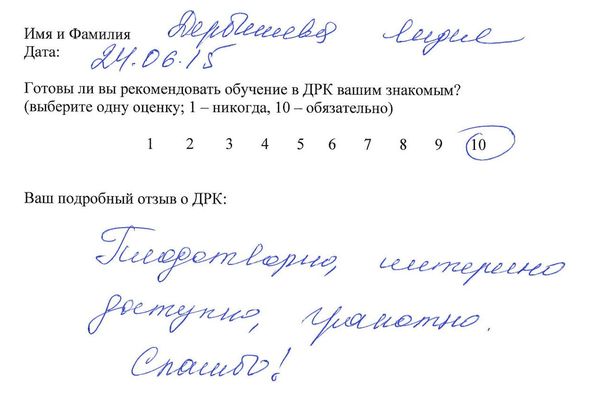 Имя и Фамилия Дербишева Лидия
Дата: 24.06.15
Готовы ли вы рекомендовать обучение в ДРК вашим знакомым?
(выберите одну оценку; 1 – никогда, 10 – обязательно)
1 2 3 4 5 6 7 8 9 10
Ваш подробный отзыв о ДРК:
Плодотворно, интересно
доступно, грамотно.
Спасибо!